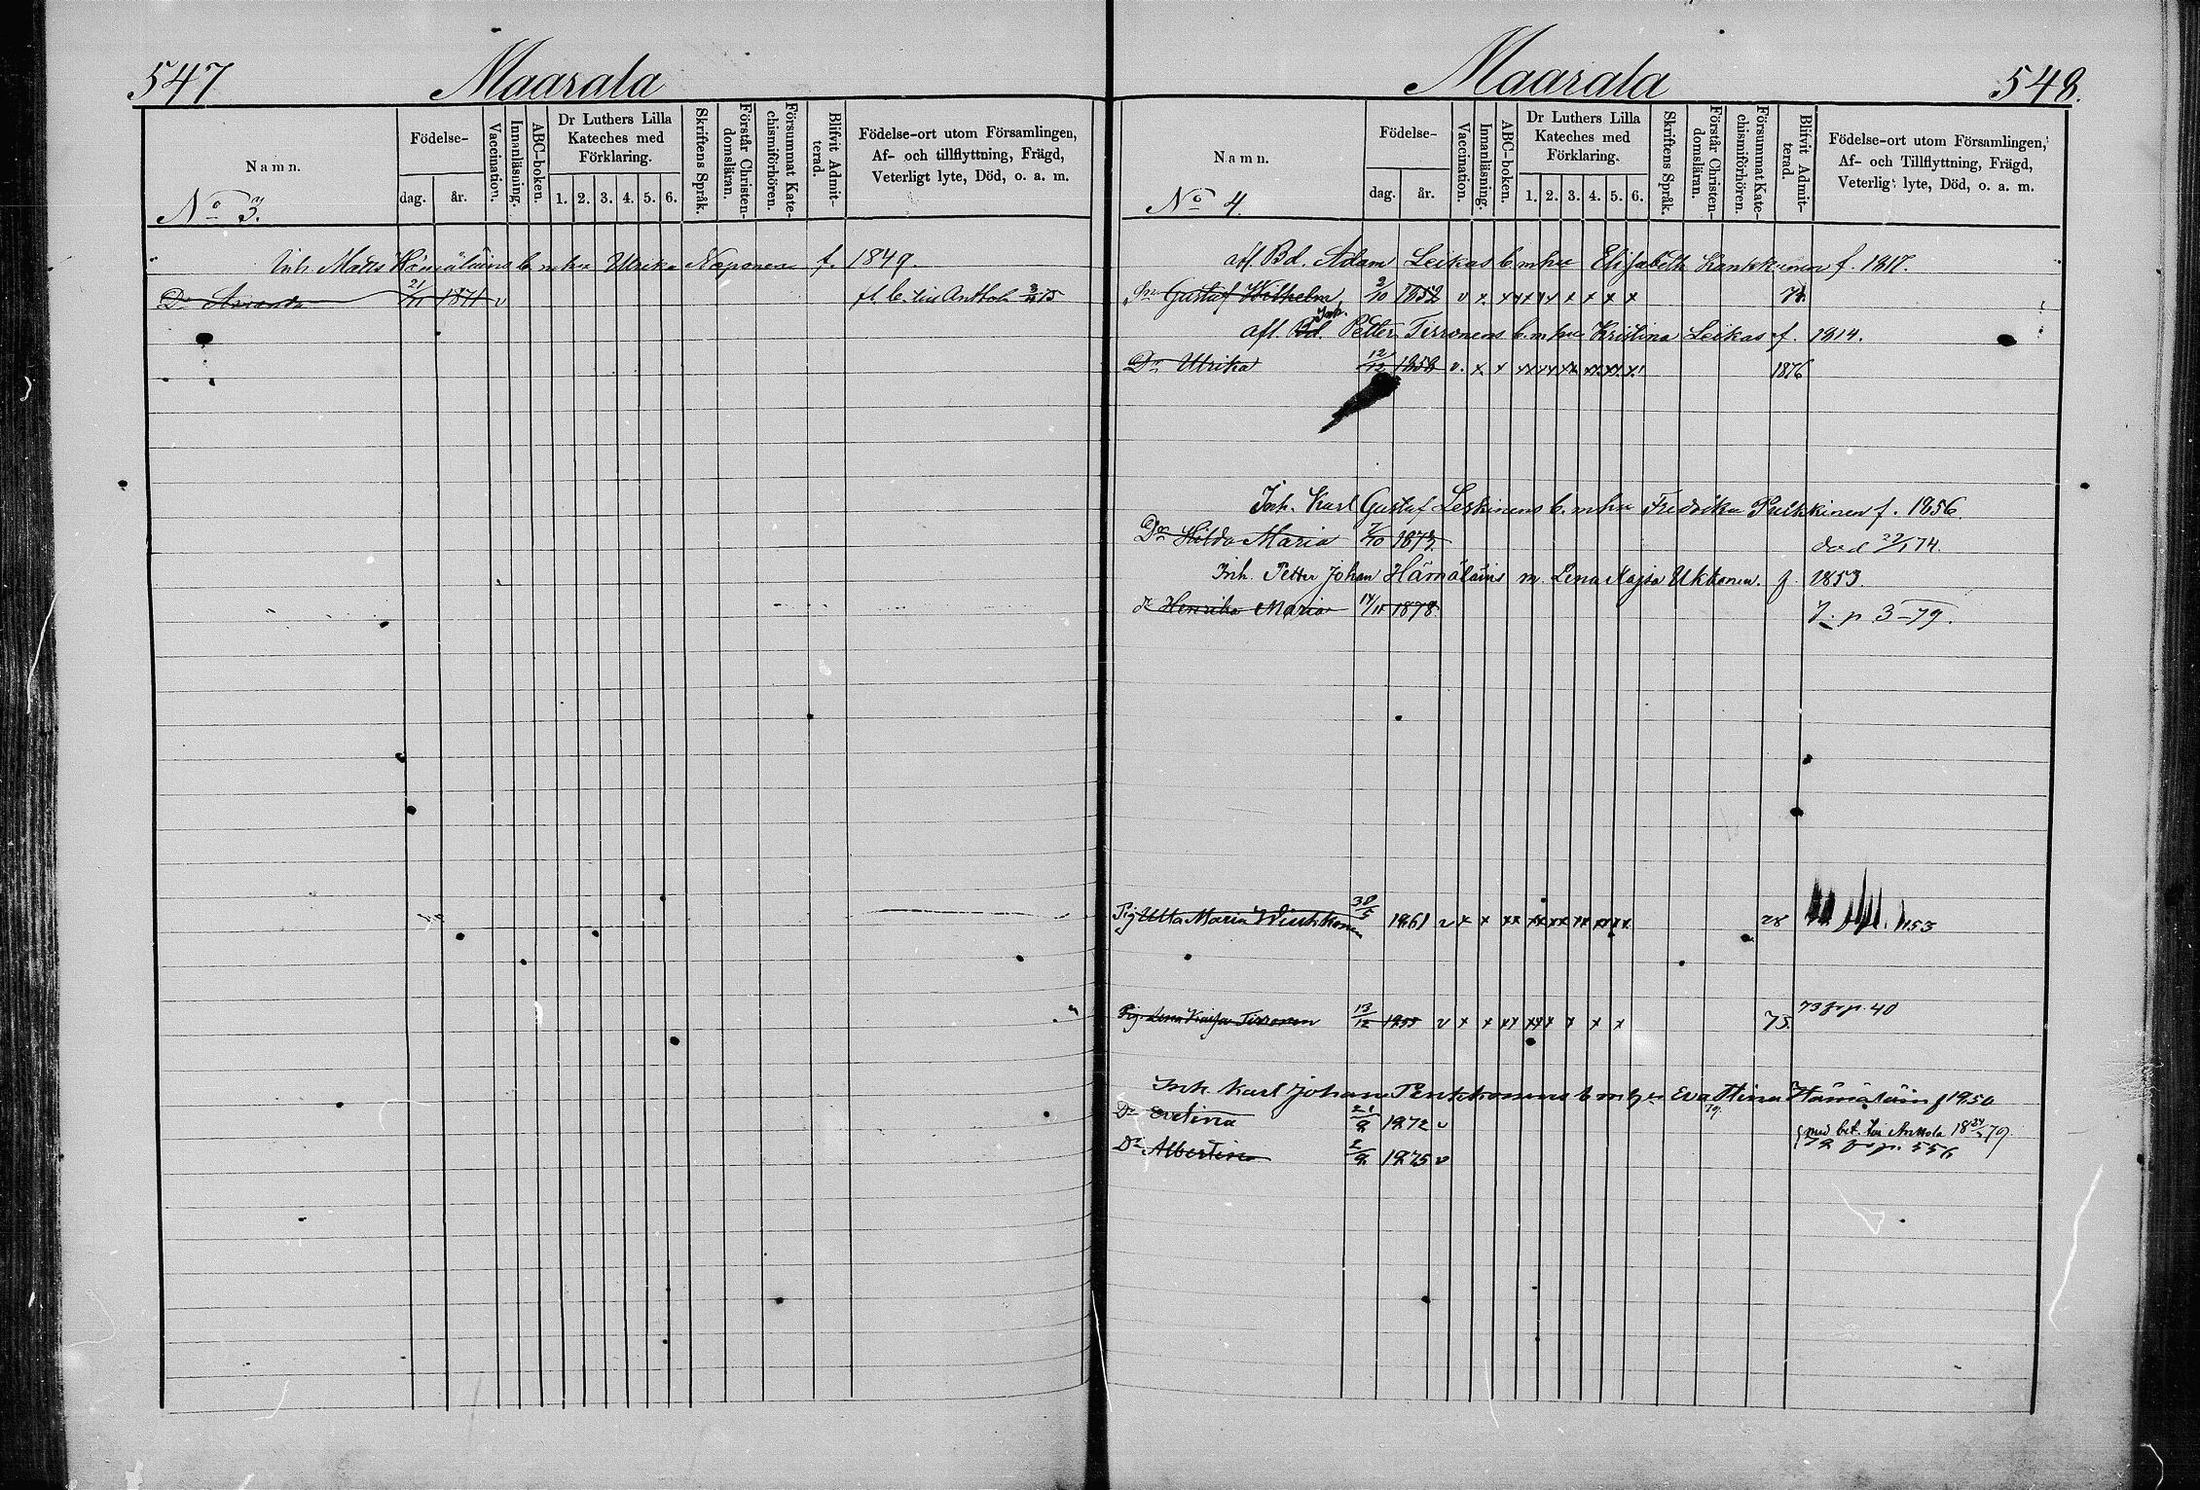 547 Maarala
Namn. Födelse- dag. år. Vaccination. Innanläsning. ABC-boken. Dr Luthers Lilla Kateches med Förklaring. 1. 2. 3. 4. 5. 6. Skriftens Språk. Förstår Christen-domsläran. Försummat Kate-chismiförhören. Blifvit Admit-terad. Födelse-ort utom Församlingen, Af- och tillflyttning, Frägd, Veterligt lyte, Död, o. a. m.
No 3.
Inh. Matts Hämäläins b. m. hu Ulrika Noponen f. 1849.
Dr Amanda 21/11 1871 v fl. b. till Anttola 3/11 75
Maarala 548.
Namn. Födelse- dag. år. Vaccination. Innanläsning. ABC-boken. Dr Luthers Lilla Kateches med Förklaring. 1. 2. 3. 4. 5. 6. Skriftens Språk. Förstår Christen-domsläran. Försummat Kate-chismiförhören. Blifvit Admit-terad. Födelse-ort utom Församlingen, Af- och Tillflyttning, Frägd, Veterligt lyte, Död, o. a. m.
No 4.
afl. Bd. Adam Leikas b. m. hu Elisabeth f. 1817.
Sn Gustaf Wilhelm 2/10 1852 v x x x x x x x x x
Inh.
afl. Bd. Petter Tirronens b. m. hu Kristina Leikas f. 1814.
Dr Ulrika 12/12 1858 v. x x xx xx xx xx xx x 1876
Inh. Karl Gustaf Leskinens b. m. hu Fredrika Pulkkinen f. 1856.
Dr Hilda Maria 7/10 1873. död 22/1 74.
Inh. Petter Johan Hämäläins m. Lena Kajsa Ukkonen. f. 1853.
dr Henrika Maria 14/11 1878. 7. p 3-79.
Pig Ulla Maria 30/5 1861 v x x xx xx xx xx xx xx 78 153
Pig. Lena Kajsa Tirronen 13/12 1855 v x x xx xx x x x x 75. 73 fr p. 40
Inh. Karl Johan Penkkonens b m hu Eva Stina Hämäläin f 1850
Dr Evelina 21/9 1872 v med bet. till Anttola 18 79
Dr Albertina 2/9 1875 v 79 fr p. 556